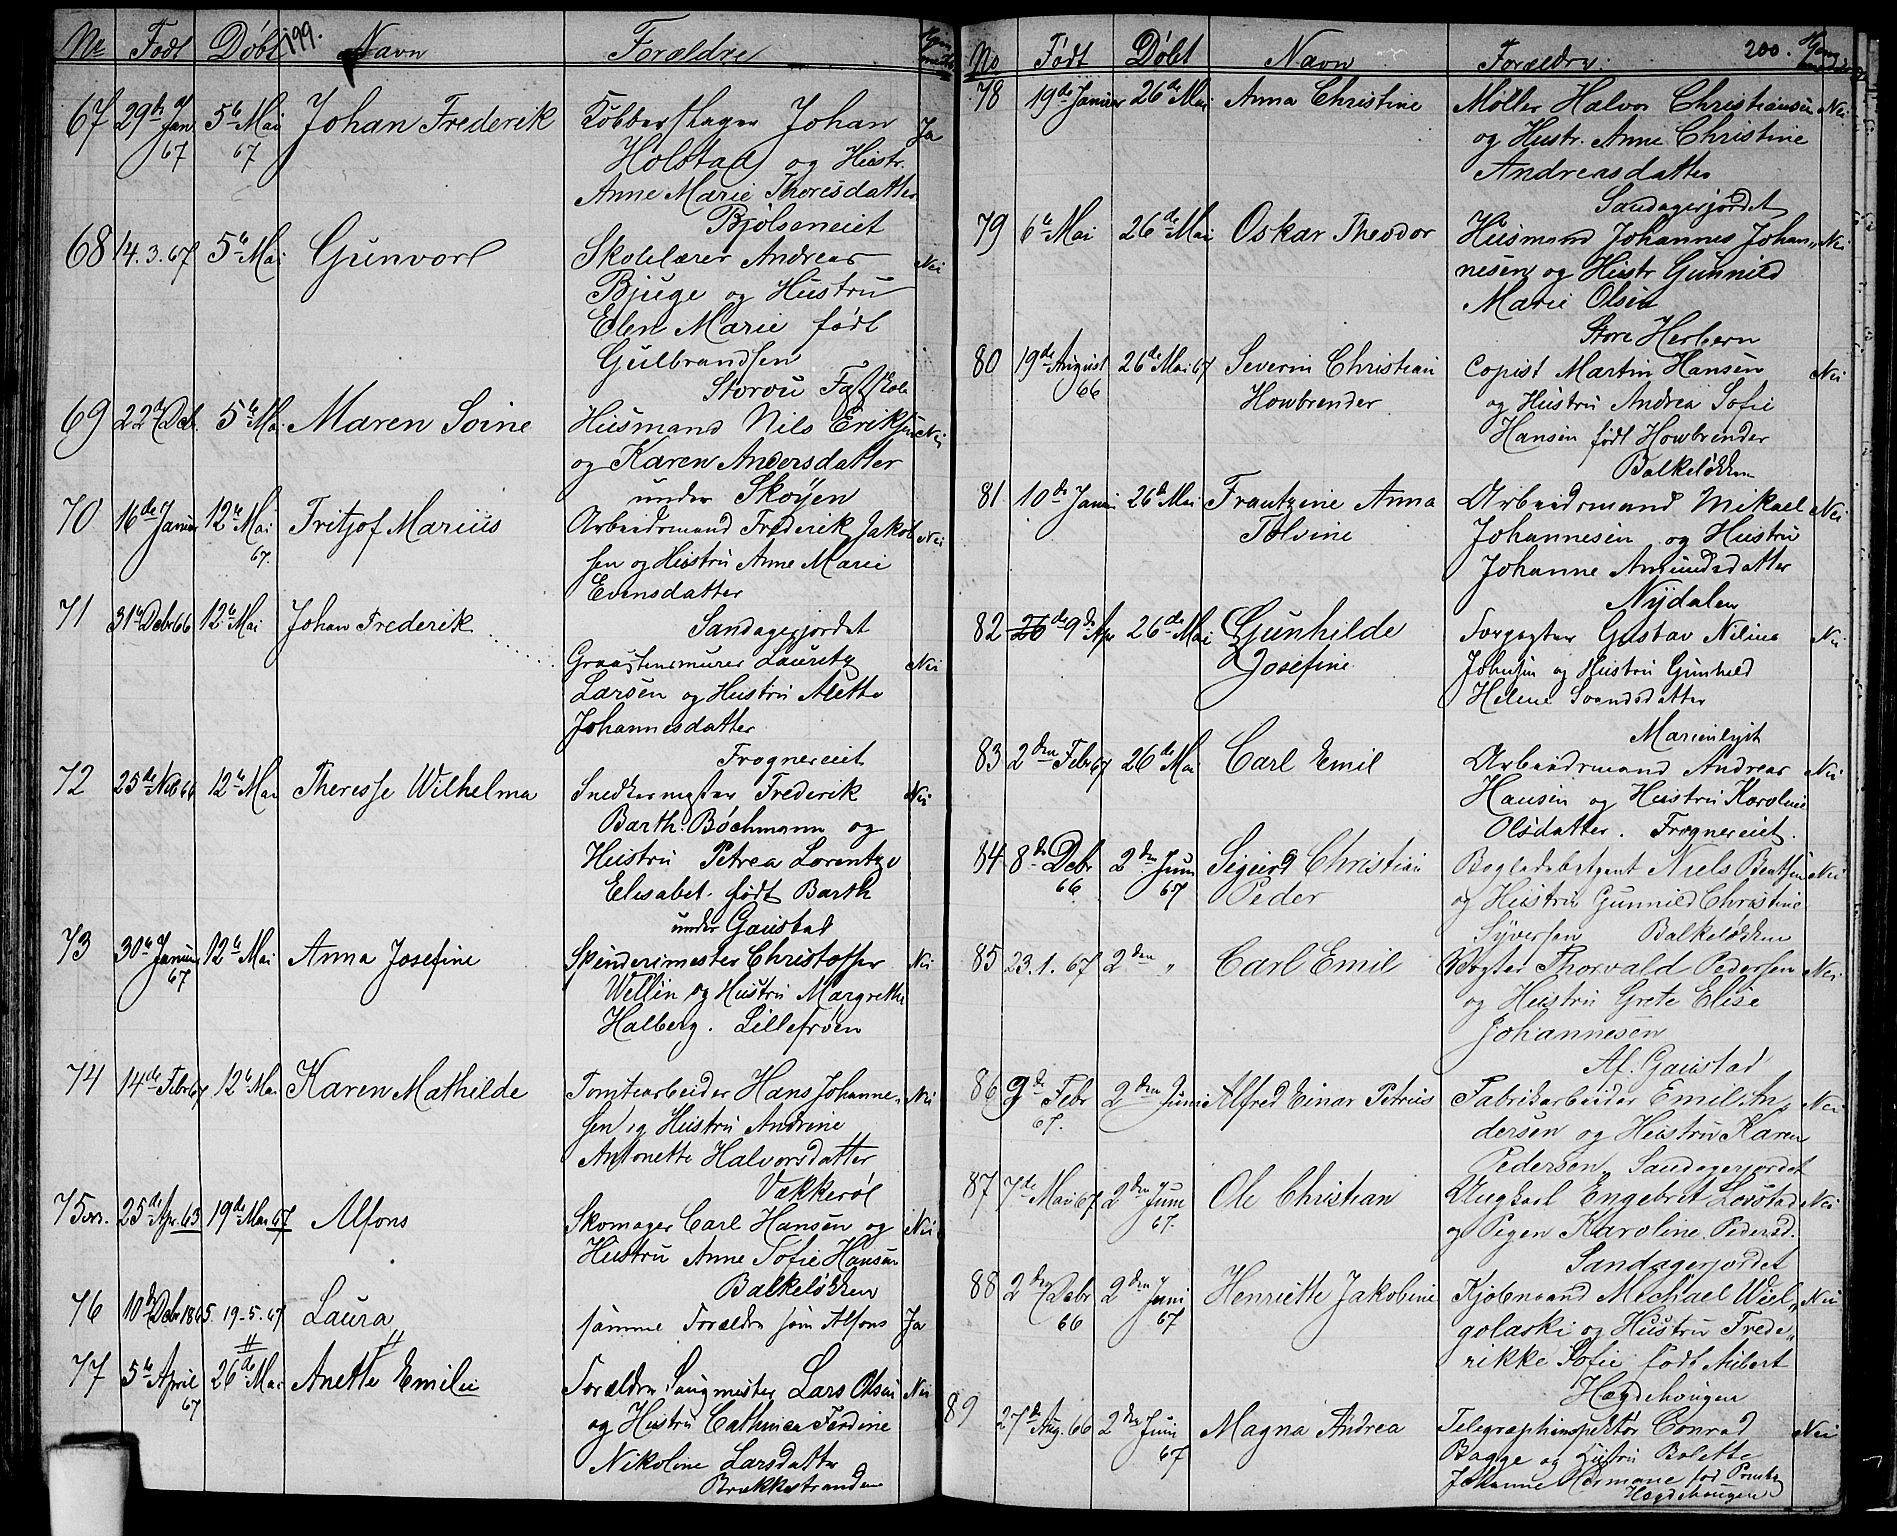 No Født Døbt 199. Navn Forældre
67 29de Jan 67 5te Mai 67 Johan Frederik Kobberslager Johan Ja
Holstad og Hustr.
Anne Marie Thoresdatter
Bjølseneiet
68 14.3.67 5te Mai Gunvorl Skolelærer Andreas Nei
Bjuge og Hustru
Elen Marie født
Gulbrandsen
Storøu Fastskole
69 22 Dcb. 5te Mai Maren Soine Husmand Nils Eriksen Nei
og Karen Andersdatter
under Skøyen
70 16de Januar 12te Mai 67. Fritjof Marius Arbeidsmand Frederik Jakob Nei
sen og Hustru Anne Marie
Evensdatter
Sandagerjordet
71 31te Dcbr 66 12te Mai Johan Frederik
Graastensmurer Lauretz Nei
Larsen og Hustru Alette
Johannesdatter
Frognereiet
72 25de Nvb 66 12te Mai Theresse Wilhelma Snedkermester Frederik Nei
Barth. Bóchmann og
Hustru Petrea Lorentze
Elisabet født Barth
under Gaustad
73 30te Januar 67 12te Mai Anna Josefine Spinderimester Christoffer Nei
Wellin og Hustru Margrethe
Halberg. Lillefrøen
74 14de Febr 67 12te Mai Karen Mathilde Tomtearbeider Hans Johanne- Nei
sen og Hustru Andrine
Antonette Halvorsdatter
Vækkerøl
75 25de Apr. 63 19de Mai 67 Alfons Skomager Carl Hansen og Nei
Hustru Anne Sofie Hansen
Balkeløkken
76 10de Dcbr 1865. 19-5.67 Laura samme Forældre som Alfons Ja
77 5te April 67 26de Mai Anette Emilie Forældre Saugmester Lars Olsen Nei
og Hustru Cathrina Ferdine
Nikoline Larsdatter
Brækkestranden
No Født Døbt Navn Forældre 200.
78 19de Januar 26de Mai Anna Christine Møller Halvor Christiansen Nei
og Hustr. Anne Christine
Andreasdatter
Sandagerjordet
79 6te Mai 26de Mai Oskar Theodor Husmand Johannes Johan- Nei
nesen og Hustr Gunnild
Marie Olsen
Store Herbern
80 19de August 66 26de Mai 67 Severin Christian Copist Martin Hansen Nei
Howbrender og Hustru Andrea Sofie
Hansen født Howbrender
Balkeløkken
81 10de Januar 26de Mai Frantzine Anna Arbeidsmand Mikael Nei
Tolvine Johannesen og Hustru
Johanne Amundsdatter
Nydalen
82 26de 9de Apr 26de Mai Gunhilde Forpagter Gustav Nilius Nei
Josefine Johnsen og Hustru Gunhild
Helene Svendsdatter
Marienlyst
83 2den Febr 67 26de Mai Carl Emil Arbeidsmand Andreas Nei
Hansen og Hustru Karoline
Olsdatter. Frognereiet.
84 8de Dcbr 66 2den Juni 67 Sigurd Christian Niels Bentsen Nei
Peder og Hustru Gunnild Christine
Syversen Balkeløkken
85 23.1.67 2den " Carl Emil Vogter Thorvald Pedersen Nei
og Hustru Grete Elise
Johannesen
Af. Gaustad
86 9de Febr 67. 2den Juni Alfred Einar Petrius Fabrikarbeider Emil An- Nei
dersen og Hustru Karen
Pedersen, Sandagerjordet
87 7de Mai 67 2den Juni 67. Ole Christian Ungkarl Engebret Løvstad Nei
og Pigen Karoline Pedersd.
Sandagerjordet
88 2den Dcbr 66 2den Juni 67 Henriette Jakobine Kjøbmand Michael Wiel- Nei
golaski og Hustru Frede-
rikke Sofie født Aubert
Hægdehougen
89 27de Aug. 66 2den Juni 67 Magna Andrea Telegraphinspektør Conrad Nei
Bagge og Hustru Bolette
Johanne Hermane fød
Hægdehougen